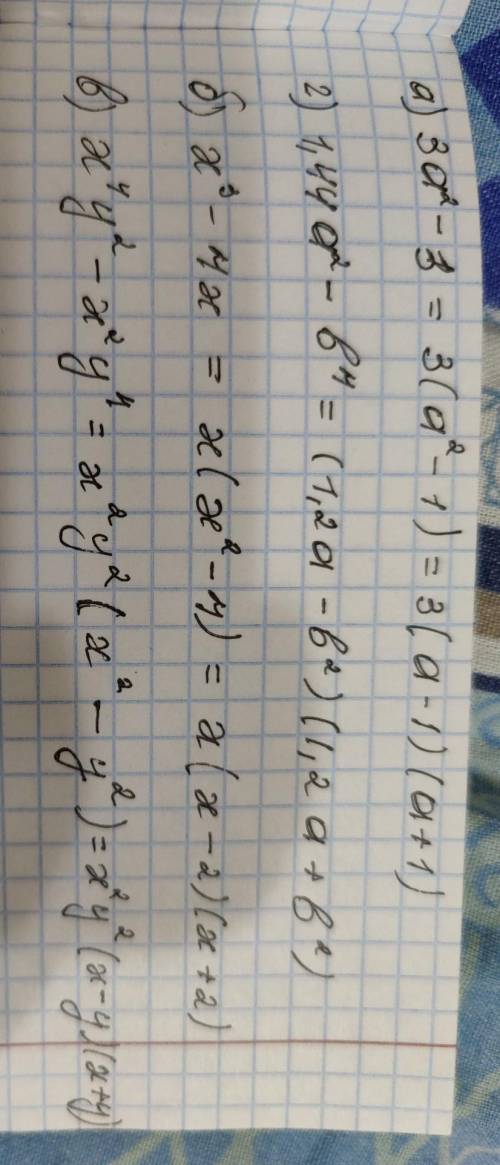 а) 3a² - 3 = 3(a² - 1) = 3(a - 1)(a + 1)
г) 1,44a² - b⁴ = (1,2a - b²)(1,2a + b²)
б) x³ - 4x = x(x² - 4) = x(x - 2)(x + 2)
в) x⁴y² - x²y⁴ = x²y²(x² - y²) = x²y²(x - y)(x + y)